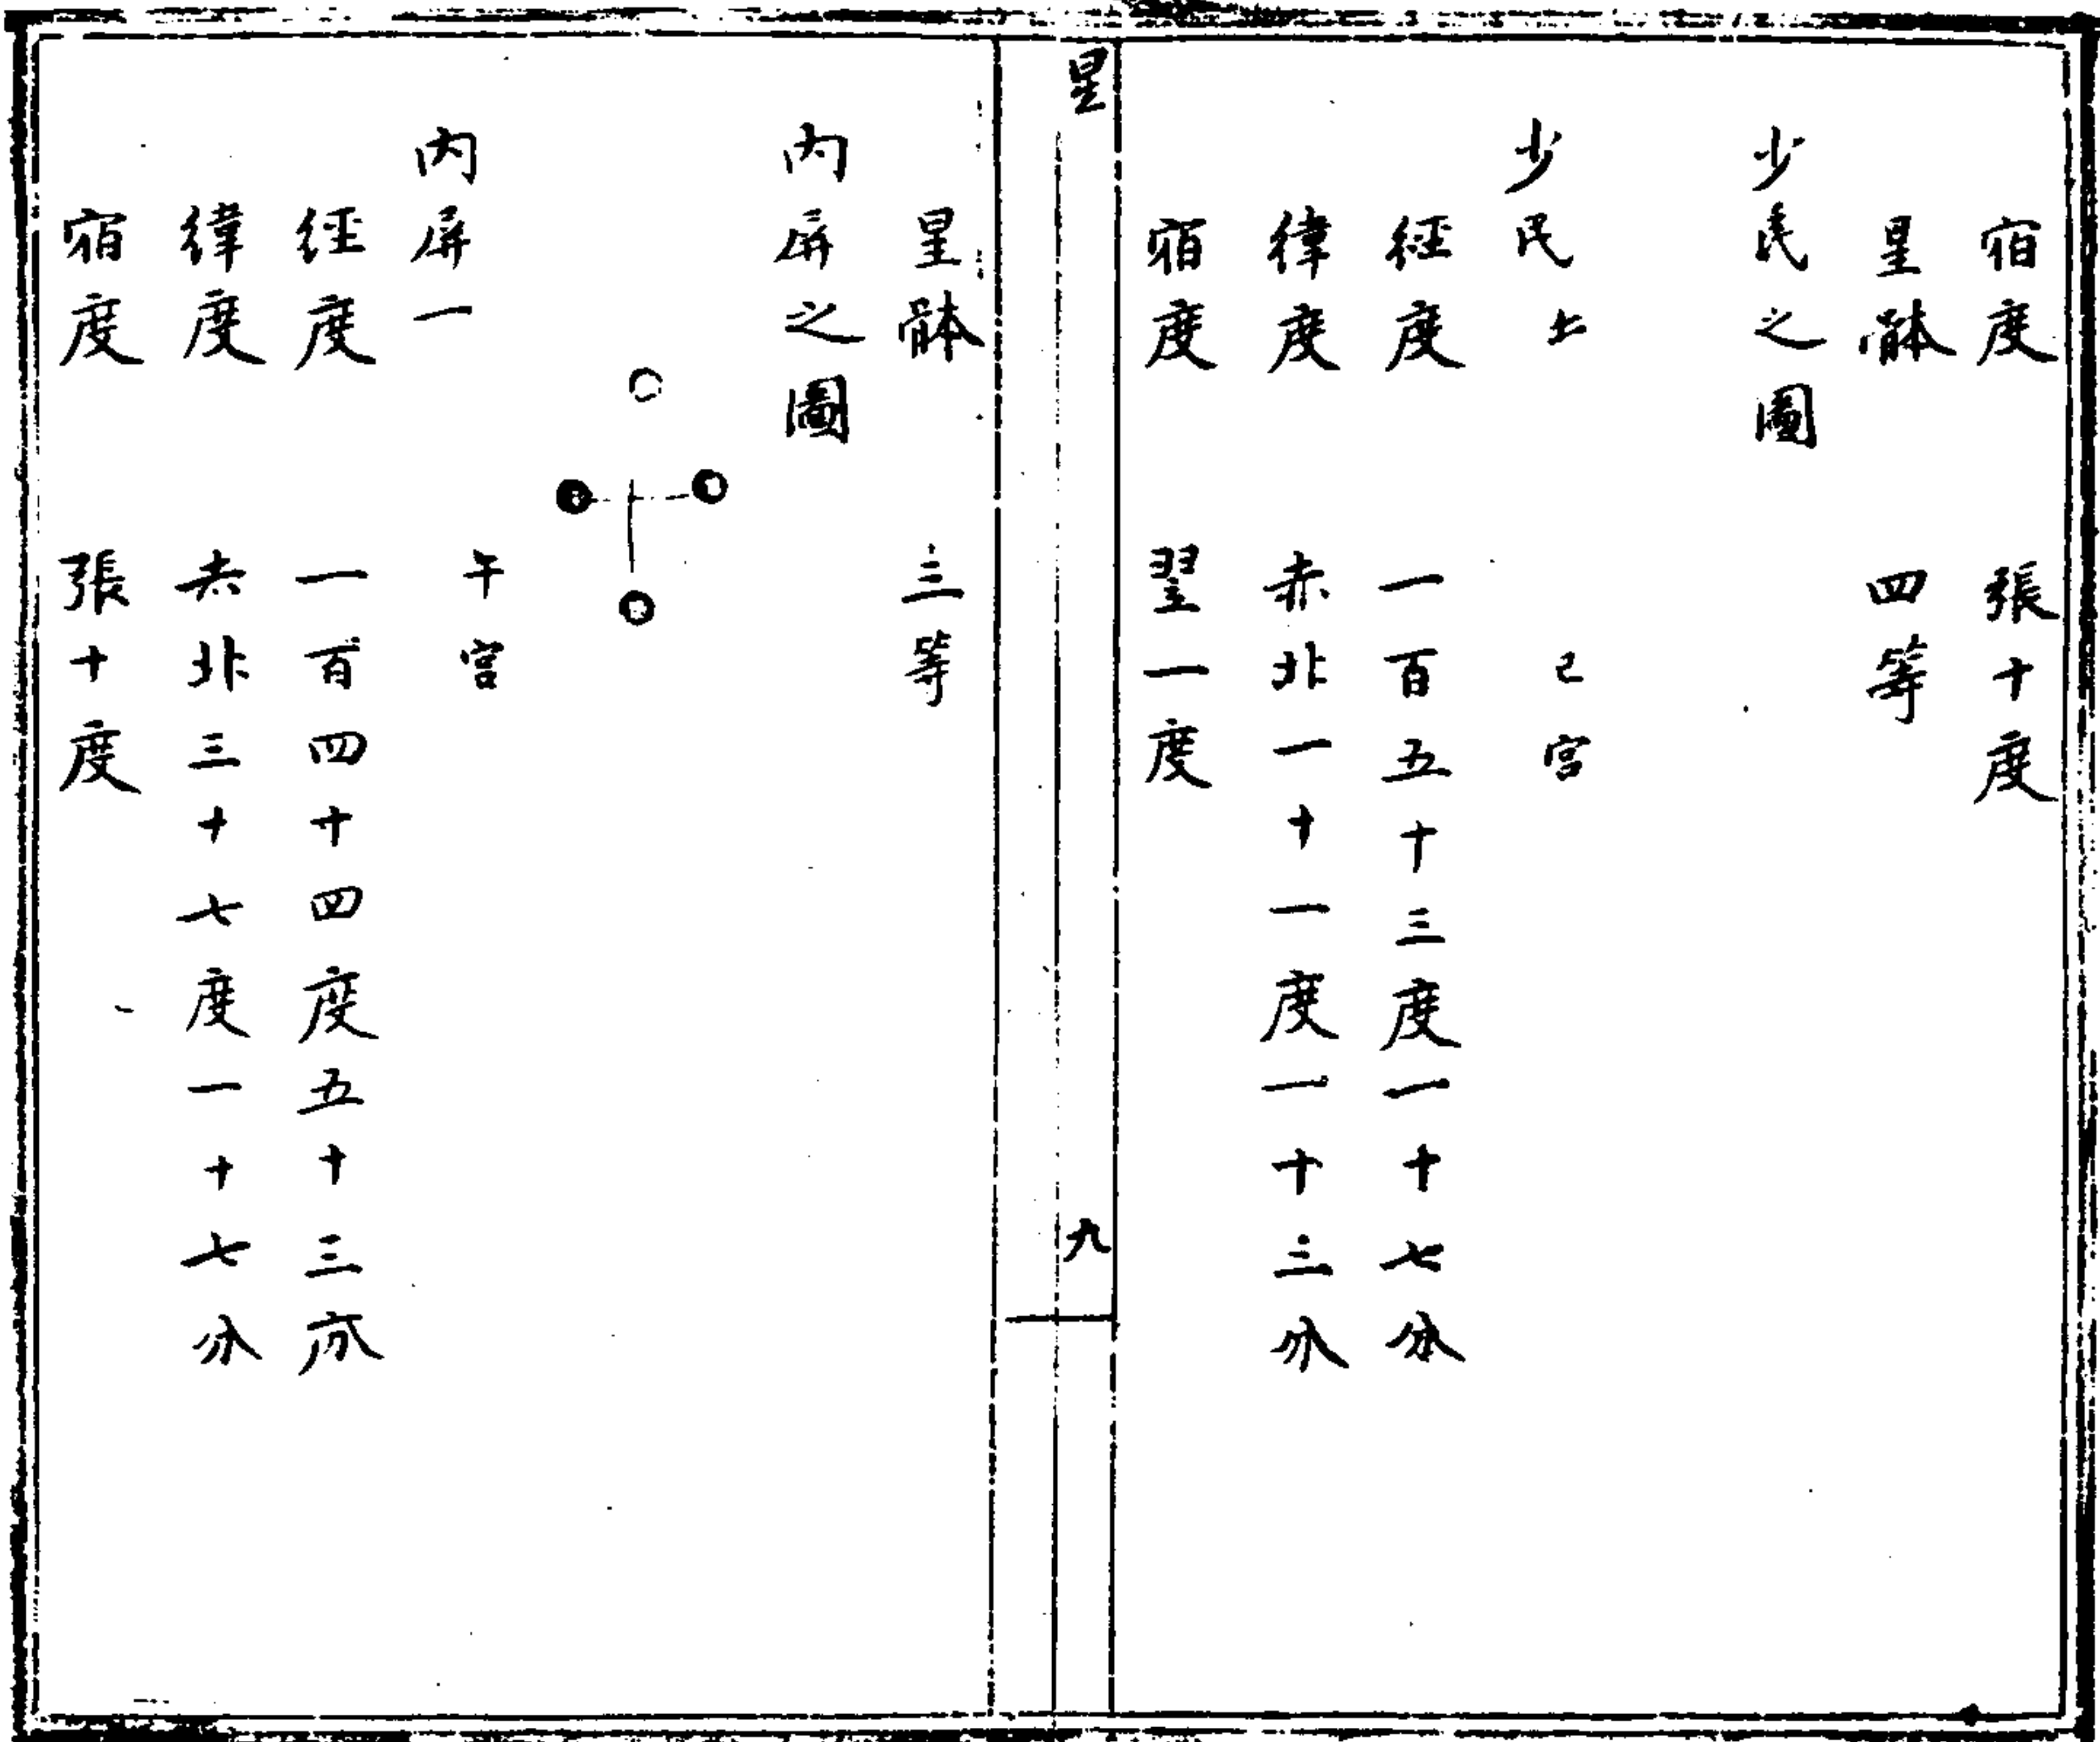 宿度 張十度
星躰 四等
少民之圖
少民 巳宮
經度 一百五十三度一十七分
緯度 赤北一十一度一十三分
宿度 翌一度
星 九
星躰 三等
內屏之圖
內屏一 午宮
經度 一百四十四度五十三分
緯度 赤北三十七度一十七分
宿度 張十度